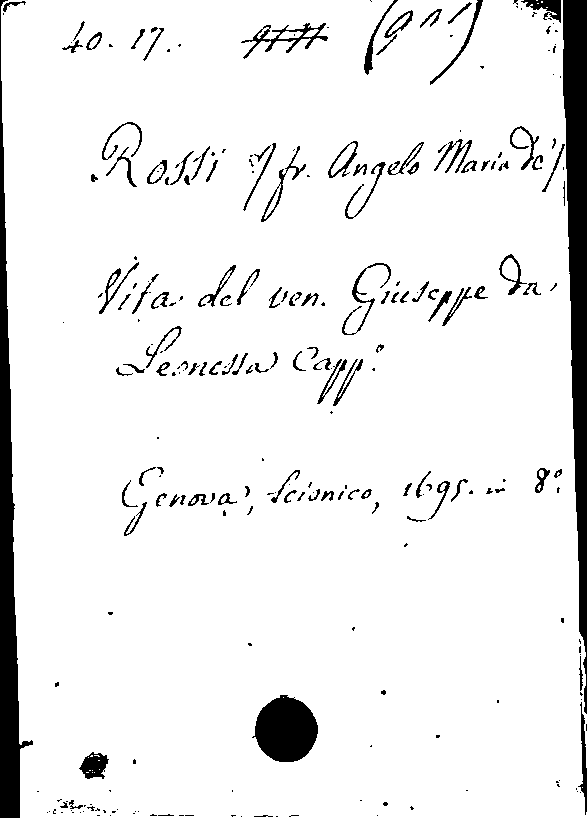 40. 17.
Rossi // fr. Angelo Maria de'//
Vita del ven. Giuseppe da
Leonessa Capp.º
Genova, Scionico, 1695. in 8º.